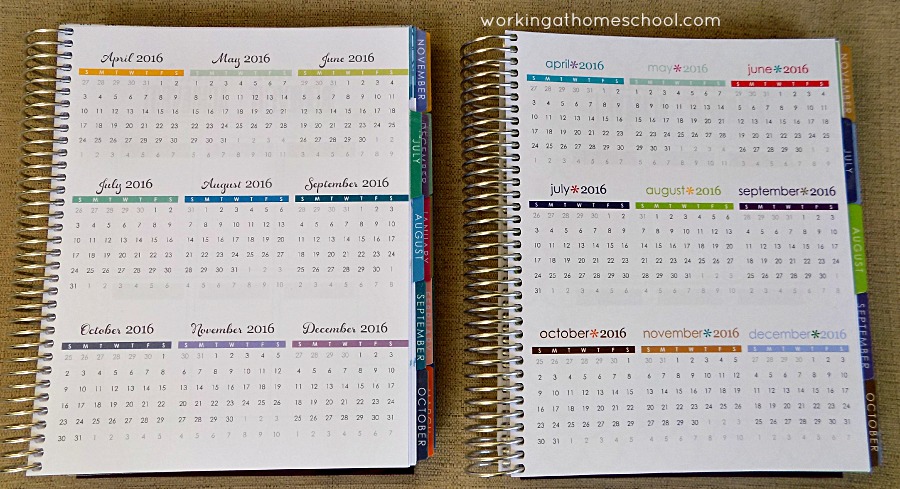 workingathomeschool.com
April 2016
S M T W T F S
27 28 29 30 31 1 2
3 4 5 6 7 8 9
10 11 12 13 14 15 16
17 18 19 20 21 22 23
24 25 26 27 28 29 30
1 2 3 4 5 6 7
May 2016
S M T W T F S
1 2 3 4 5 6 7
8 9 10 11 12 13 14
15 16 17 18 19 20 21
22 23 24 25 26 27 28
29 30 31 1 2 3 4
5 6 7 8 9 10 11
June 2016
S M T W T F S
29 30 31 1 2 3 4
5 6 7 8 9 10 11
12 13 14 15 16 17 18
19 20 21 22 23 24 25
26 27 28 29 30 1 2
3 4 5 6 7 8 9
July 2016
S M T W T F S
26 27 28 29 30 1 2
3 4 5 6 7 8 9
10 11 12 13 14 15 16
17 18 19 20 21 22 23
24 25 26 27 28 29 30
31 1 2 3 4 5 6
August 2016
S M T W T F S
31 1 2 3 4 5 6
7 8 9 10 11 12 13
14 15 16 17 18 19 20
21 22 23 24 25 26 27
28 29 30 31 1 2 3
4 5 6 7 8 9 10
September 2016
S M T W T F S
28 29 30 31 1 2 3
4 5 6 7 8 9 10
11 12 13 14 15 16 17
18 19 20 21 22 23 24
25 26 27 28 29 30 1
2 3 4 5 6 7 8
October 2016
S M T W T F S
25 26 27 28 29 30 1
2 3 4 5 6 7 8
9 10 11 12 13 14 15
16 17 18 19 20 21 22
23 24 25 26 27 28 29
30 31 1 2 3 4 5
November 2016
S M T W T F S
30 31 1 2 3 4 5
6 7 8 9 10 11 12
13 14 15 16 17 18 19
20 21 22 23 24 25 26
27 28 29 30 1 2 3
4 5 6 7 8 9 10
December 2016
S M T W T F S
27 28 29 30 1 2 3
4 5 6 7 8 9 10
11 12 13 14 15 16 17
18 19 20 21 22 23 24
25 26 27 28 29 30 31
1 2 3 4 5 6 7
NOVEMBER
DECEMBER
JULY
JANUARY
AUGUST
SEPTEMBER
OCTOBER
april*2016
S M T W T F S
27 28 29 30 31 1 2
3 4 5 6 7 8 9
10 11 12 13 14 15 16
17 18 19 20 21 22 23
24 25 26 27 28 29 30
1 2 3 4 5 6 7
may*2016
S M T W T F S
1 2 3 4 5 6 7
8 9 10 11 12 13 14
15 16 17 18 19 20 21
22 23 24 25 26 27 28
29 30 31 1 2 3 4
5 6 7 8 9 10 11
june*2016
S M T W T F S
29 30 31 1 2 3 4
5 6 7 8 9 10 11
12 13 14 15 16 17 18
19 20 21 22 23 24 25
26 27 28 29 30 1 2
3 4 5 6 7 8 9
july*2016
S M T W T F S
26 27 28 29 30 1 2
3 4 5 6 7 8 9
10 11 12 13 14 15 16
17 18 19 20 21 22 23
24 25 26 27 28 29 30
31 1 2 3 4 5 6
august*2016
S M T W T F S
31 1 2 3 4 5 6
7 8 9 10 11 12 13
14 15 16 17 18 19 20
21 22 23 24 25 26 27
28 29 30 31 1 2 3
4 5 6 7 8 9 10
september*2016
S M T W T F S
28 29 30 31 1 2 3
4 5 6 7 8 9 10
11 12 13 14 15 16 17
18 19 20 21 22 23 24
25 26 27 28 29 30 1
2 3 4 5 6 7 8
october*2016
S M T W T F S
25 26 27 28 29 30 1
2 3 4 5 6 7 8
9 10 11 12 13 14 15
16 17 18 19 20 21 22
23 24 25 26 27 28 29
30 31 1 2 3 4 5
november*2016
S M T W T F S
30 31 1 2 3 4 5
6 7 8 9 10 11 12
13 14 15 16 17 18 19
20 21 22 23 24 25 26
27 28 29 30 1 2 3
4 5 6 7 8 9 10
december*2016
S M T W T F S
27 28 29 30 1 2 3
4 5 6 7 8 9 10
11 12 13 14 15 16 17
18 19 20 21 22 23 24
25 26 27 28 29 30 31
1 2 3 4 5 6 7
NOVEMBER
JULY
AUGUST
SEPTEMBER
OCTOBER